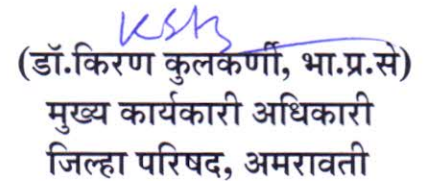 (डॉ.किरण कुलकर्णी, भा.प्र.से)
मुख्य कार्यकारी अधिकारी
जिल्हा परिषद, अमरावती